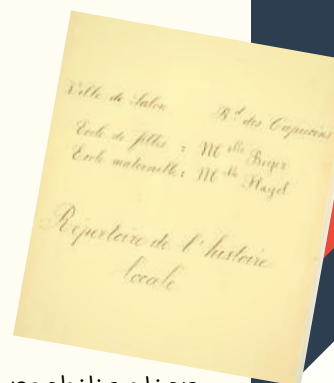 Ville de Salon
B.d des Capucins
Ecole de filles : Melle Boyer
Ecole maternelle : Melle
Répertoire de l'histoire
locale
mobilisation